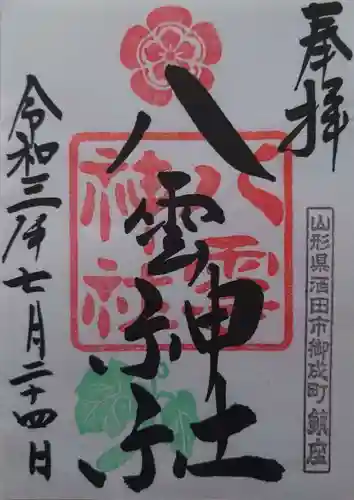 奉拝
山形県酒田市御成町鎮座
八雲神社
八雲
神社
令和三年七月二十四日